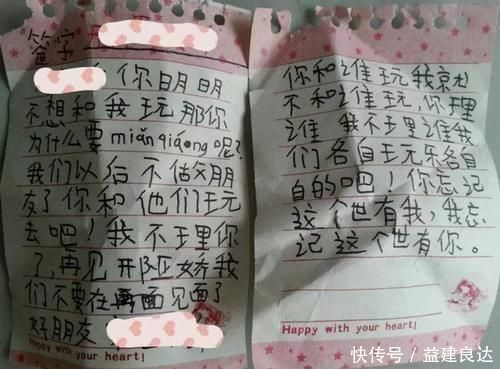 签字
你明明
不想和我玩那你
为什么要miǎnqiáng呢?
我们以后不做朋
友了你和他们玩
去吧!我不理你
了,再见邢娇我
们不要在画面见面了
好朋友
Happy with your heart!
你和谁玩我京尤
不和谁玩,你理
谁我不理谁我
们各自玩乐各自
自的吧!你忘记
这个世有我,我忘
记这个世有你。
Happy with your heart!
快传号/益建良达